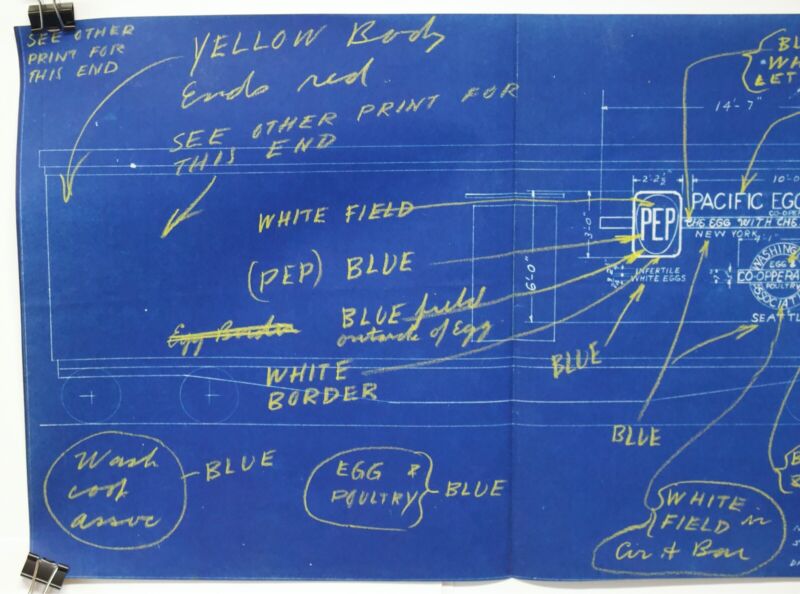 SEE OTHER
PRINT FOR
THIS END
YELLOW Body
Ends red
SEE OTHER PRINT FOR
THIS END
WHITE FIELD
(PEP) BLUE
BLUE field
outside of Egg
Egg Border
WHITE
BORDER
Wash
coop
assoc
BLUE
EGG &
POULTRY
BLUE
14'-7"
2'-2½"
10'-0
3'-0"
6'-0"
PEP
INFERTILE
WHITE EGGS
PACIFIC EGG
CO-OPE
THE EGG WITH THE
NEW YORK
4'-1"
WASHING
EGG &
CO-OPERA
POULTRY
ASSOCIATI
SEATTL
BLUE
BLUE
BL
WH
LET
WHITE
FIELD in
Cir & Bar